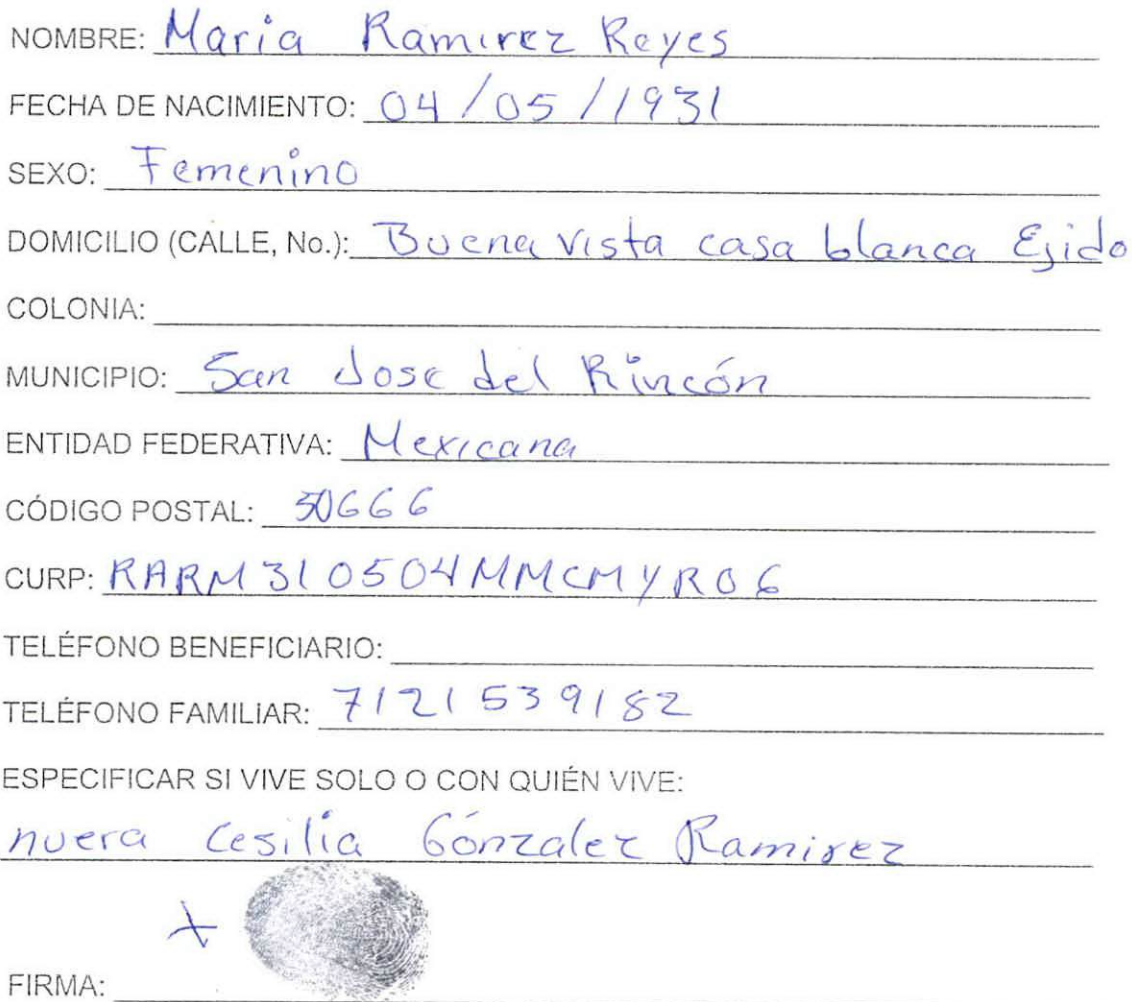 NOMBRE: Maria Ramirez Reyes
FECHA DE NACIMIENTO: 04/05/1931
SEXO: Femenino
DOMICILIO (CALLE, No.): Buena vista casa blanca Ejido
COLONIA:
MUNICIPIO: San Jose del Rincón
ENTIDAD FEDERATIVA: Mexicana
CÓDIGO POSTAL: 50666
CURP: RARM310504MMCMYR06
TELÉFONO BENEFICIARIO:
TELÉFONO FAMILIAR: 7121539182
ESPECIFICAR SI VIVE SOLO O CON QUIÉN VIVE:
nuera Cesilia Gónzalez Ramirez
x
FIRMA: